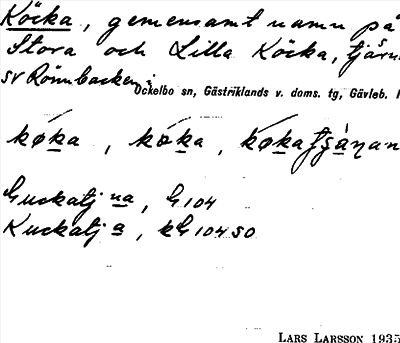 Köcka, gemensamt namn på
Stora och Lilla Köcka, tjärn
sv Rönnbacken i
Ockelbo sn, Gästriklands v. doms. tg, Gävleb.
køka, køka, køkatjänan
Guckatj na, G 104
Kuckatj a, kG 104 SO
LARS LARSSON 1935